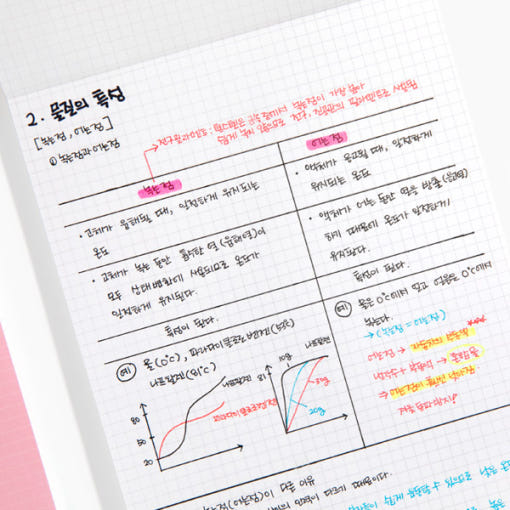 2. 물질의 특성
[녹는점, 어는점]
① 녹는점과 어는점
→ 전구 필라멘트 : 텅스텐은 금속 중에서 녹는점이 가장 높아
쉽게 녹지 않으므로 전구, 진공관의 필라멘트로 사용됨
녹는점
· 고체가 융해될 때, 일정하게 유지되는
온도
· 고체가 녹는 동안 흡수한 열(융해열)이
모두 상태변화에 사용되므로 온도가
일정하게 유지된다.
특성이 된다.
예 물(0℃), 파라다이클로로벤젠(53℃)
나프탈렌(81℃)
80
50
20
나프탈렌
파라다이클로로벤젠
나프탈렌
81
10g
20g
어는점
· 액체가 응고될 때, 일정하게
유지되는 온도
· 액체가 어는 동안 열을 방출(응고열)
하기 때문에 온도가 일정하게
유지된다.
특성이 된다.
예 물은 0℃에서 얼고 얼음은 0℃에서
녹는다.
→ (녹는점 = 어는점)
어는점 →
냉각수 + →
⇒ 어는점이 낮아짐
(어는점)이 다른 이유
다르기 때문이다.